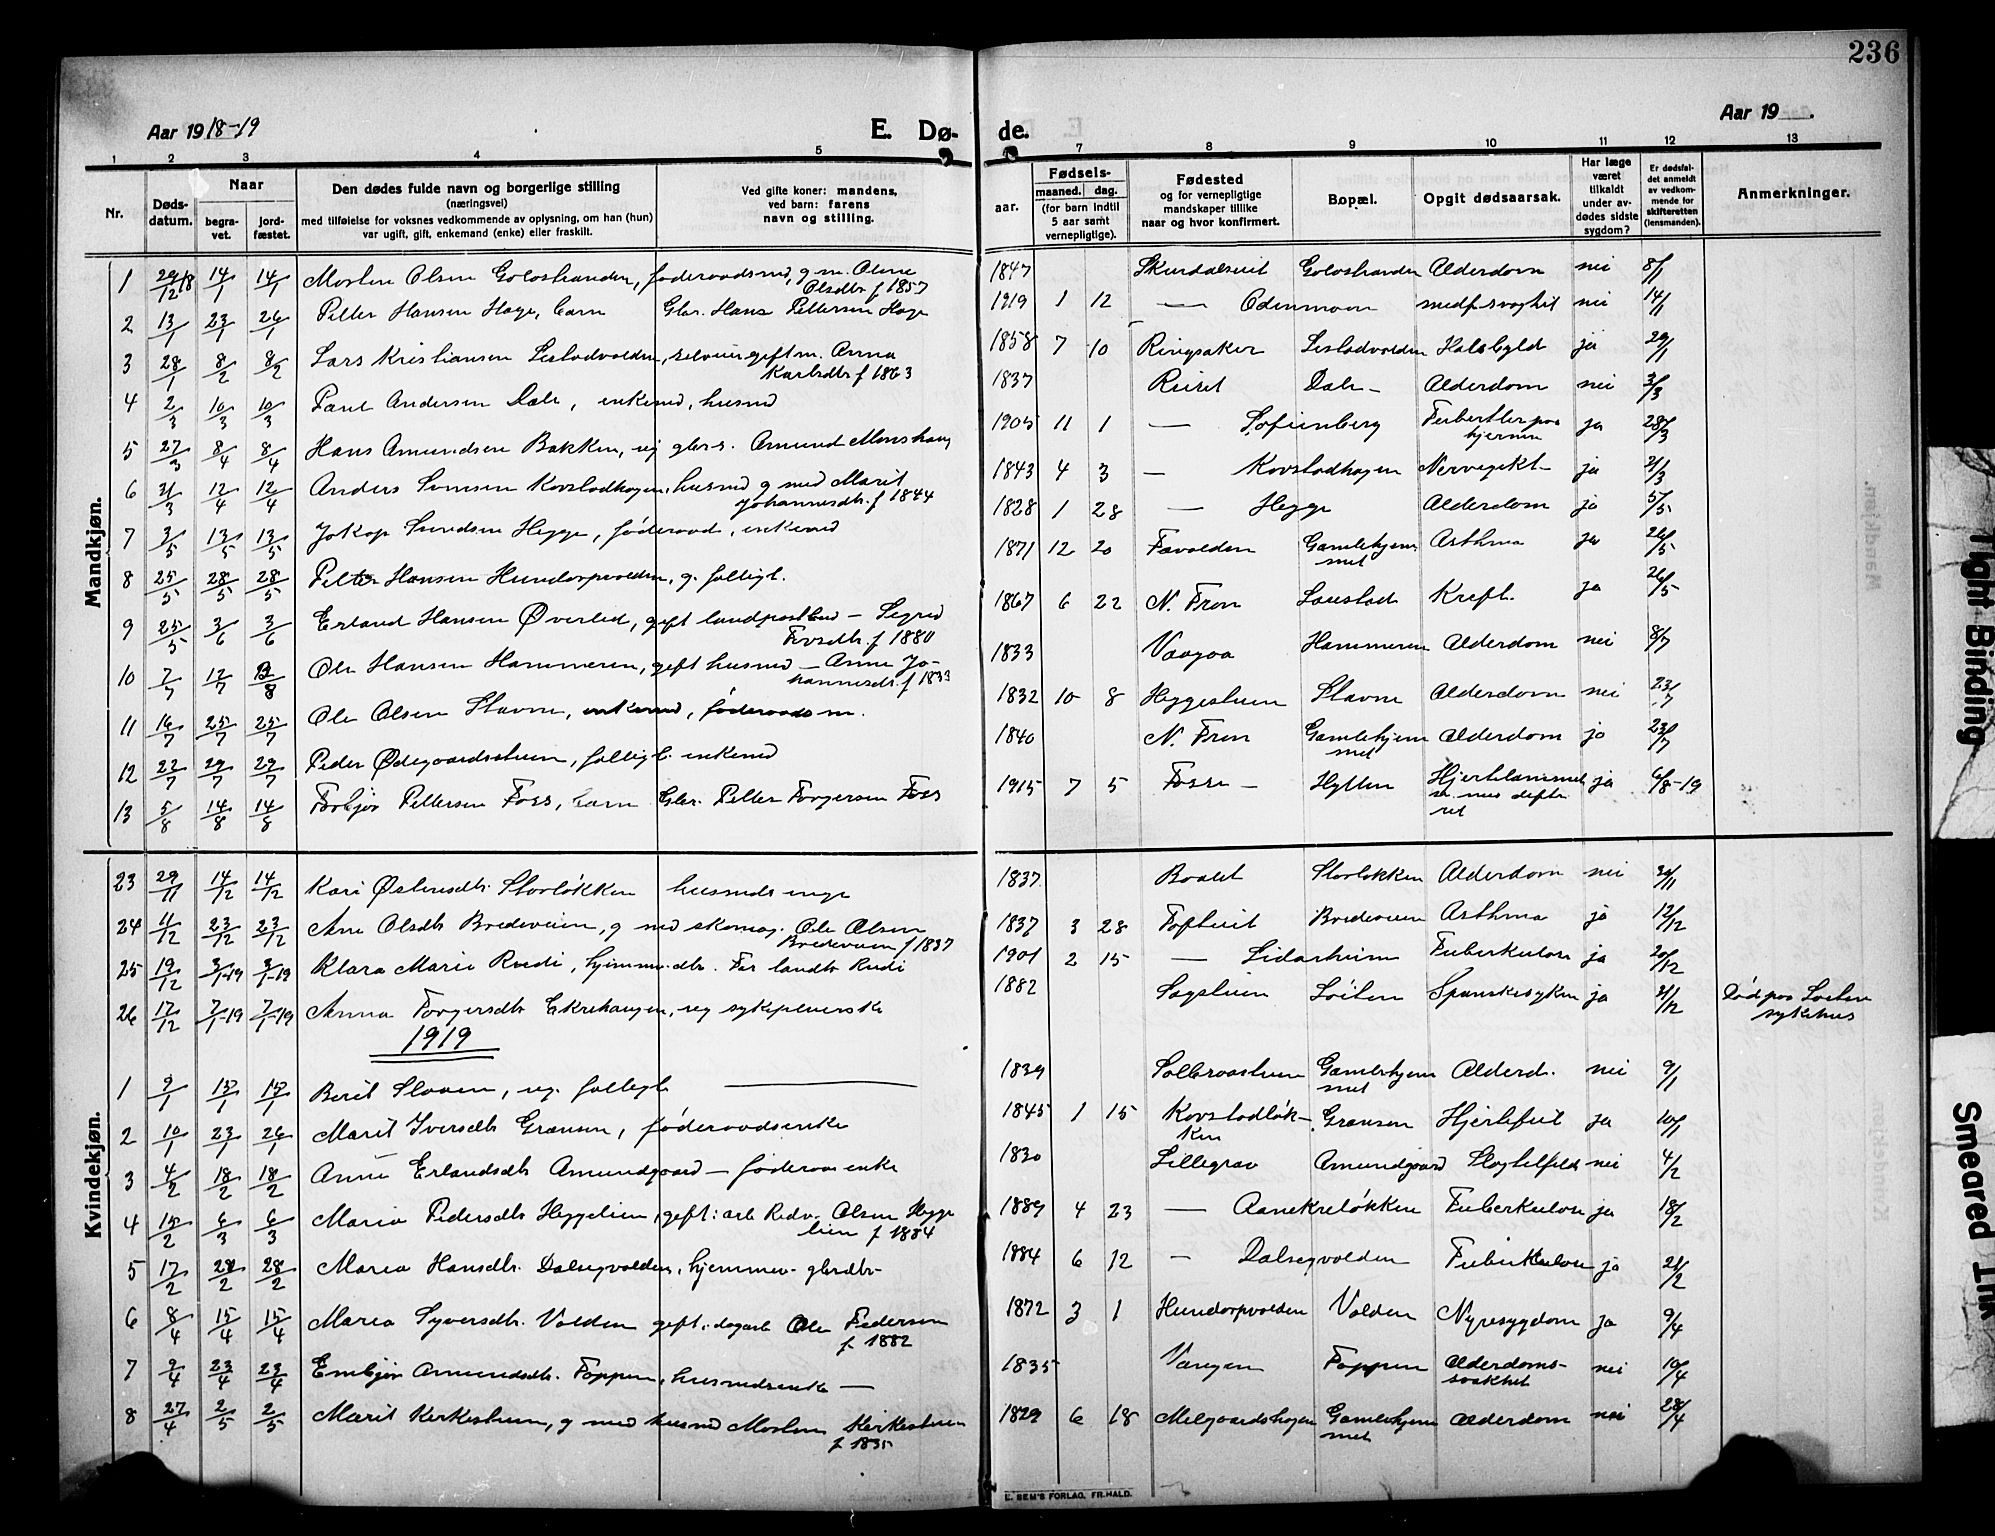 236
Aar 1918-19
E. Dø-
de.
Aar 19
1 2 3 4 5
7 8 9 10 11 12 13
Nr.
Døds-
datum.
Naar
begra-
vet.
jord-
fæstet.
Den dødes fulde navn og borgerlige stilling
(næringsvei)
med tilføielse for voksnes vedkommende av oplysning, om han (hun)
var ugift, gift, enkemand (enke) eller fraskilt.
Ved gifte koner: mandens,
ved barn: farens
navn og stilling.
Fødsels-
aar.
maaned. dag.
(for barn indtil
5 aar samt
vernepligtige).
Fødested
og for vernepligtige
mandskaper tillike
naar og hvor konfirmert.
Bopæl.
Opgit dødsaarsak.
Har læge
været
tilkaldt
under av-
dødes sidste
sygdom?
Er dødsfal-
det anmeldt
av vedkom-
mende for
skifteretten
(lensmanden).
Anmerkninger.
Mandkjøn.
1 29/12 18 14/1 14/1 Morten Olsen føderaadsmd, g. m. Olsdtr f 1857 1847 Alderdom nei 8/1
2 13/1 23/1 26/1 Petter Hansen Hage, barn Gbr. Hans Pettersen Hage 1919 1 12 — Odenmoen medf. svaghet nei 14/1
3 28/1 8/2 8/2 Lars Kristiansen selveier gift m. Anna Karlsdtr f 1863 1858 7 10 Ringsaker Halsbyld ja 29/1
4 2/3 10/3 10/3 Paul Andersen Dale, enkemd, husmd 1837 Dale — Alderdom nei 3/3
5 27/3 8/4 8/4 Hans Amundsen Bakken, ug gbr. s. Amund Monshaug 1905 11 1 — Sofienberg hjernen ja 28/3
6 21/3 12/4 12/4 Anders husmd g med Marit Johannesdtr. f 1844 1843 4 3 — Kovstadhagen ja 21/3
7 3/5 13/5 13/5 Jakop Hegge, føderaad, enkemd 1828 1 28 — Hegge Alderdom ja 5/5
8 25/5 28/5 28/5 Petter Hansen Hundorpvolden, g. fattigl. 1871 12 20 Gamlehjemmet Asthma ja 26/5
9 25/5 3/6 3/6 Erland Hansen Øverlid, gift landpostbud — Sigrid f 1880 1867 6 22 N. Fron Kreft. ja 26/5
10 7/7 12/7 Ole Hansen Hammeren, gift husmd — Anne Johannesdr. f 1833 1833 Vaagaa Hammeren Alderdom nei 8/7
11 16/7 25/7 25/7 Ole Olsen Stavne, enkemd, føderaadsm. 1832 10 8 Stavne Alderdom nei 23/7
12 22/7 29/7 29/7 Peder Ødegaardsstuen, fattigl. enkemd 1840 N. Fron Gamlehjemmet Alderdom ja 23/7
13 5/8 14/8 14/8 Torbjør Pettersen Foss, barn Gbr. Petter Torgersen Foss 1915 7 5 Fosse — Hytten ja 6/8-19
23 29/11 14/12 14/12 Kari Østensdtr. Storløkken husmds enge 1837 Storløkken Alderdom nei 30/11
24 11/12 23/12 23/12 Ane Olsdtr Bredeveien, g med skomag. Ole Olsen Bredeveien f 1837 1837 3 28 Bredeveien Asthma ja 12/12
25 19/12 3/1-19 3/1-19 Klara Marie Rudi, hjemmev. dtr. Far landh. Rudi 1901 2 15 — Lidarheim Tuberkulose ja 20/12
26 17/12 7/1-19 7/1-19 Anna Torgersdtr Ekrehaugen, ug sykepleierske 1882 Løiten Spanskesyken ja 21/12 Død paa Løiten
sykehus
1919
Kvindekjøn.
1 9/1 15/1 15/1 Berit Slaaen, ug. fattigl — 1839 Solbraastuen Gamlehjemmet Alderd. nei 9/1
2 10/1 23/1 26/1 Marit Iversdtr Grænsen, føderaadsenke 1845 1 15 Kovstadløkken Grænsen Hjertefeil ja 10/1
3 4/2 18/2 18/2 Anne Erlandsdtr Amundgaard — føderaa enke 1830 Lillegrav Amundgaard Slagtilfelde nei 4/2
4 15/2 6/3 6/3 Maria Pedersdtr Heggelien, gift: arb Olsen Heggelien f 1884 1889 4 23 — Aanekreløkken Tuberkulose ja 18/2
5 17/2 28/2 28/2 Maria Hansdtr. Dalsegvolden, hjemmev. gbrdtr. 1884 6 12 — Dalsegvolden Tuberkulose ja 21/2
6 8/4 15/4 15/4 Maria Syversdtr. Volden gift: dagarb Ole Pedersen f. 1882 1872 3 1 Hundorpvolden Volden Nyresygdom ja 9/4
7 9/4 23/4 23/4 Embjør Amundsdtr. Toppen, husmdsenke — 1835 Vangen Toppen Alderdomssvakhet nei 10/4
8 27/4 2/5 2/5 Marit Kirkestuen, g med husmd Morten Kirkestuen f 1835 1829 6 18 Melgaardshagen Gamlehjemmet Alderdom nei 28/4
E. SEM'S FORLAG, FR.HALD.
Tight Binding
Smeared Ink